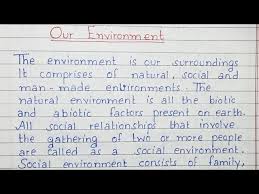 Our Environment
The environment is our surroundings
It comprises of natural, social and
man-made environments. The
natural environment is all the biotic
and abiotic factors present on earth.
All social relationships that involve
the gathering of two or more people
are called as a social environment.
Social environment consists of family,